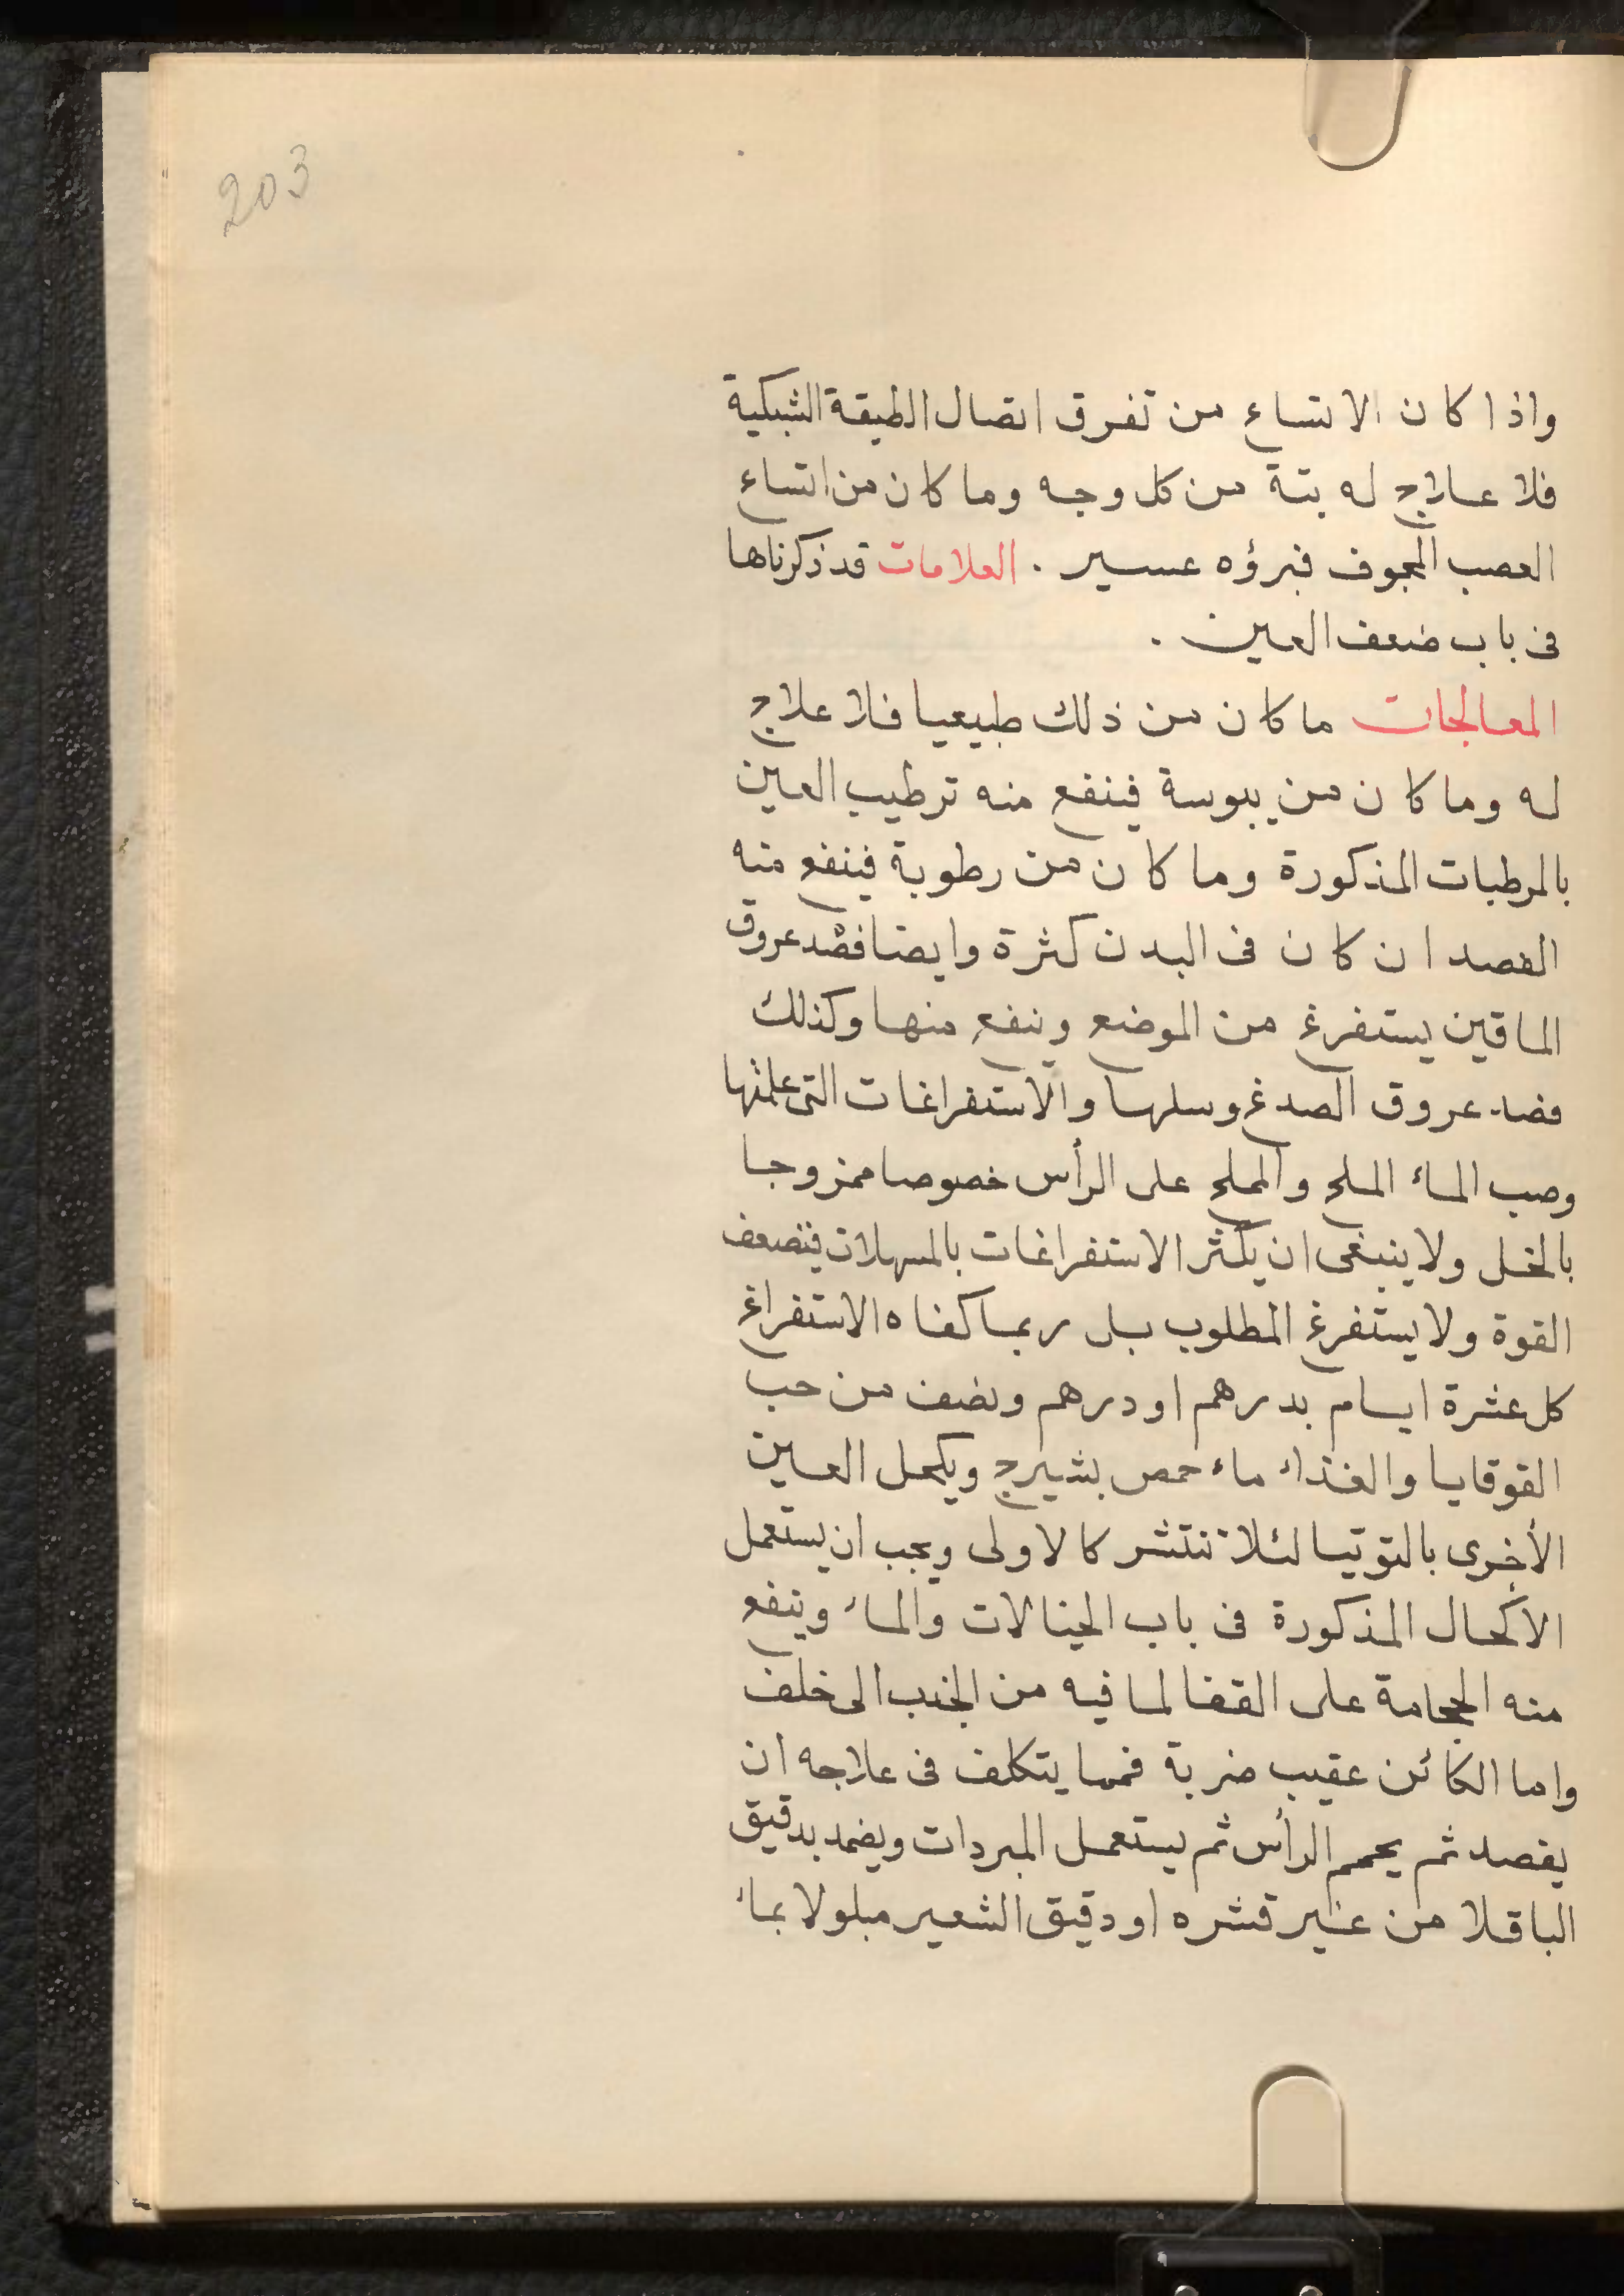 203
واذا كان الاتساع من تفرق اتصال الطبقة الشبكية
فلا علاج له بتة من كل وجه وما كان من اتساع
العصب المجوف فبرؤه عسير . العلامات قد ذكرناها
فى باب ضعف العين .
المعالجات ما كان من ذلك طبيعيا فلا علاج
له وما كان من يبوسة فينفع منه ترطيب العين
بالمرطبات المذكورة وما كان من رطوبة فينفع منه
الفصد ان كان فى البدن كثرة وايضا فصد عروق
الماقين يستفرغ من الموضع وينفع منها وكذلك
فصد عروق الصدغ وسلها والاستفراغات التى علمتها
وصب الماء الملح والمملح على الرأس خصوصا ممزوجا
بالخل ولا ينبغى ان يكثر الاستفراغات بالمسهلات فتضعف
القوة ولا يستفرغ المطلوب بل ربما كفاه الاستفراغ
كل عشرة ايام بدرهم او درهم ونصف من حب
القوقايا والغذاء ماء حمص بشيرج ويكحل العين
الأخرى بالتوتيا لئلا تنتشر كالاولى ويجب ان يستعمل
الأكحال المذكورة فى باب الخيالات والماء وينفع
منه الحجامة على القفا لما فيه من الجذب الى خلف
واما الكائن عقيب ضربة فمما يتكلف فى علاجه ان
يفصد ثم يحجم الرأس ثم يستعمل المبردات ويضمد بدقيق
الباقلا من غير قشره او دقيق الشعير مبلولا بماء